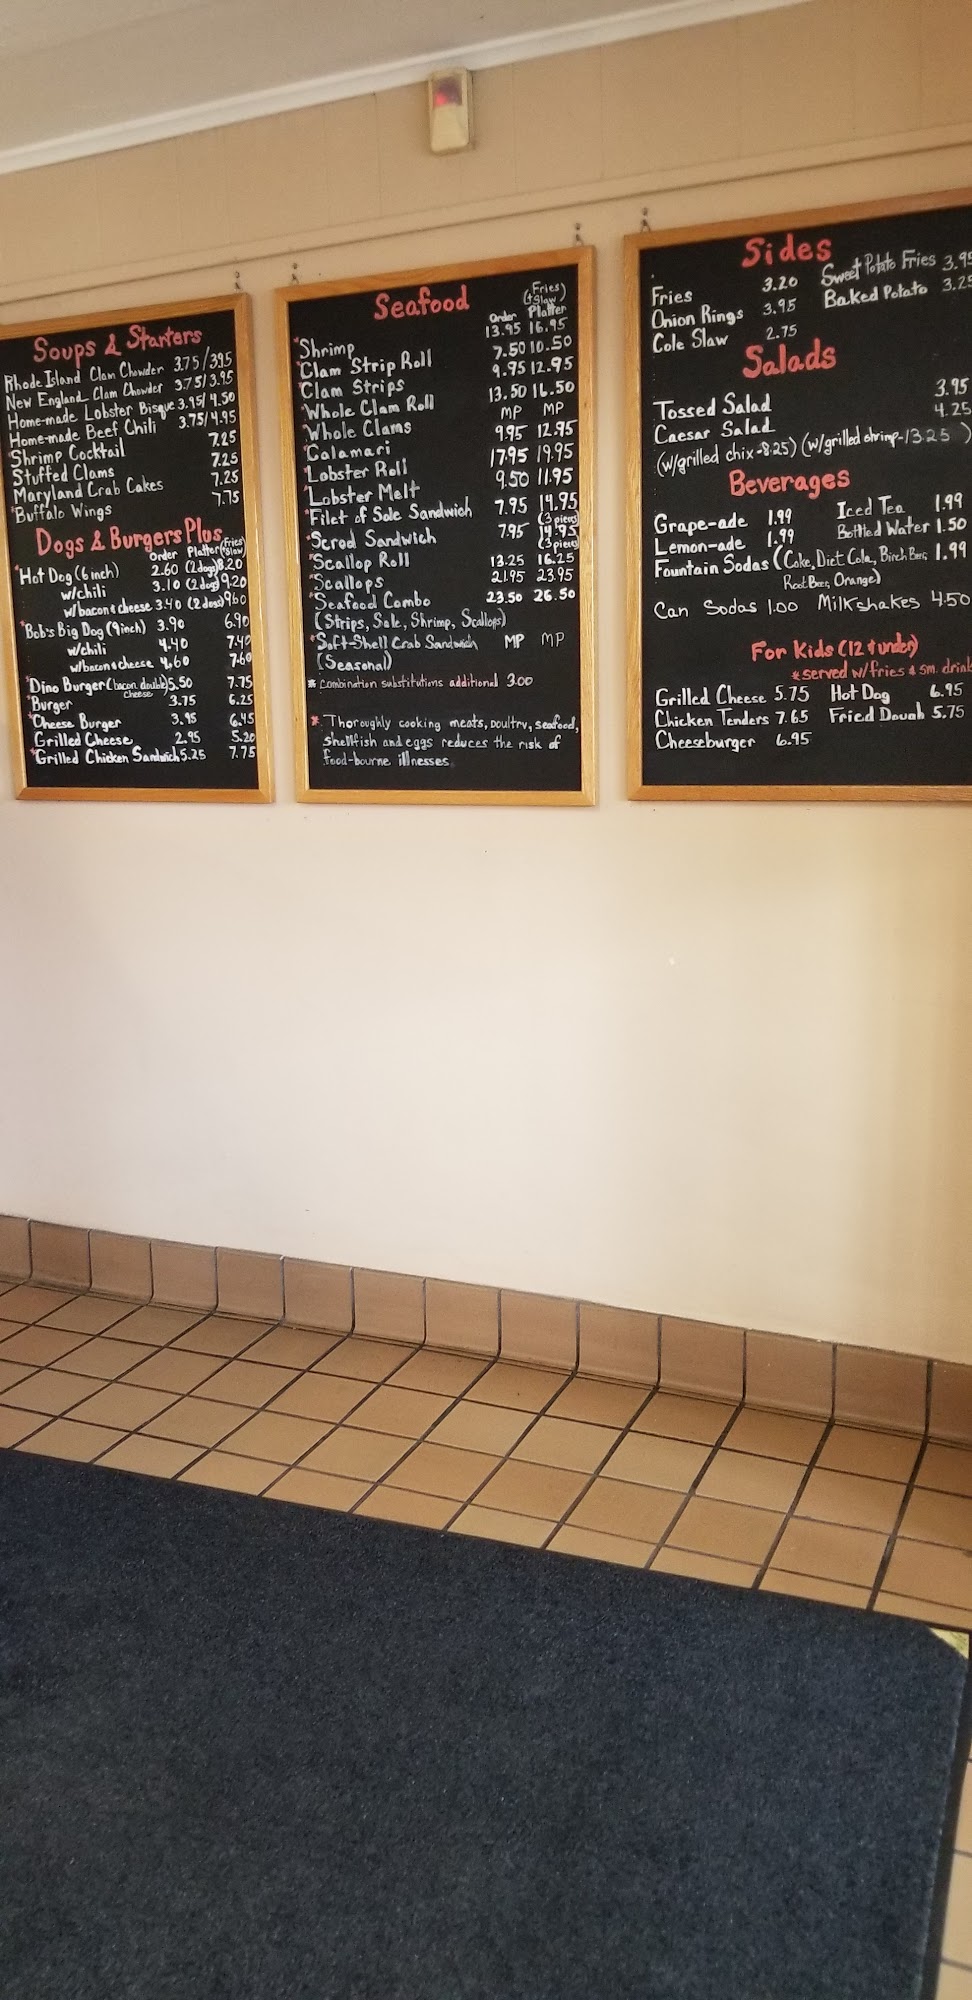 Soups & Starters
Rhode Island Clam Chowder 3.75/3.95
New England Clam Chowder 3.75/3.95
Home-made Lobster Bisque 3.95/4.50
Home-made Beef Chili 3.75/4.95
Shrimp Cocktail 7.25
Stuffed Clams 7.25
Maryland Crab Cakes 7.25
*Buffalo Wings 7.75
Dogs & Burgers Plus
Order Platter (Fries Slaw)
*Hot Dog (6 inch) 2.60 (2 dogs) 8.20
w/chili 3.10 (2 dogs) 9.20
w/bacon & cheese 3.40 (2 dogs) 9.60
*Bob's Big Dog (9 inch) 3.90 6.90
w/chili 4.40 7.40
w/bacon & cheese 4.60 7.60
*Dino Burger (bacon double cheese) 5.50 7.75
*Burger 3.75 6.25
*Cheese Burger 3.95 6.45
Grilled Cheese 2.95 5.20
*Grilled Chicken Sandwich 5.25 7.75
Seafood
(Fries)
(+Slaw)
Order Platter
*Shrimp 13.95 16.95
*Clam Strip Roll 7.50 10.50
*Clam Strips 9.95 12.95
*Whole Clam Roll 13.50 16.50
*Whole Clams MP MP
*Calamari 9.95 12.95
*Lobster Roll 17.95 19.95
*Lobster Melt 9.50 11.95
*Filet of Sole Sandwich 7.95 14.95
(3 piece)
*Scrod Sandwich 7.95 14.95
(3 piece)
*Scallop Roll 13.25 16.25
*Scallops 21.95 23.95
*Seafood Combo 23.50 26.50
(Strips, Sole, Shrimp, Scallops)
*Soft-Shell Crab Sandwich MP MP
(Seasonal)
* Combination substitutions additional 3.00
* Thoroughly cooking meats, poultry, seafood,
shellfish and eggs reduces the risk of
food-bourne illnesses
Sides
Fries 3.20 Sweet Potato Fries 3.95
Onion Rings 3.95 Baked Potato 3.25
Cole Slaw 2.75
Salads
Tossed Salad 3.95
Caesar Salad 4.25
(w/grilled chix-8.25) (w/grilled shrimp-13.25)
Beverages
Grape-ade 1.99 Iced Tea 1.99
Lemon-ade 1.99 Bottled Water 1.50
Fountain Sodas (Coke, Diet Cola, Birch Beer, 1.99
Root Beer, Orange)
Can Sodas 1.00 Milkshakes 4.50
For Kids (12 & under)
*served w/fries & sm. drink
Grilled Cheese 5.75 Hot Dog 6.95
Chicken Tenders 7.65 Fried Dough 5.75
Cheeseburger 6.95